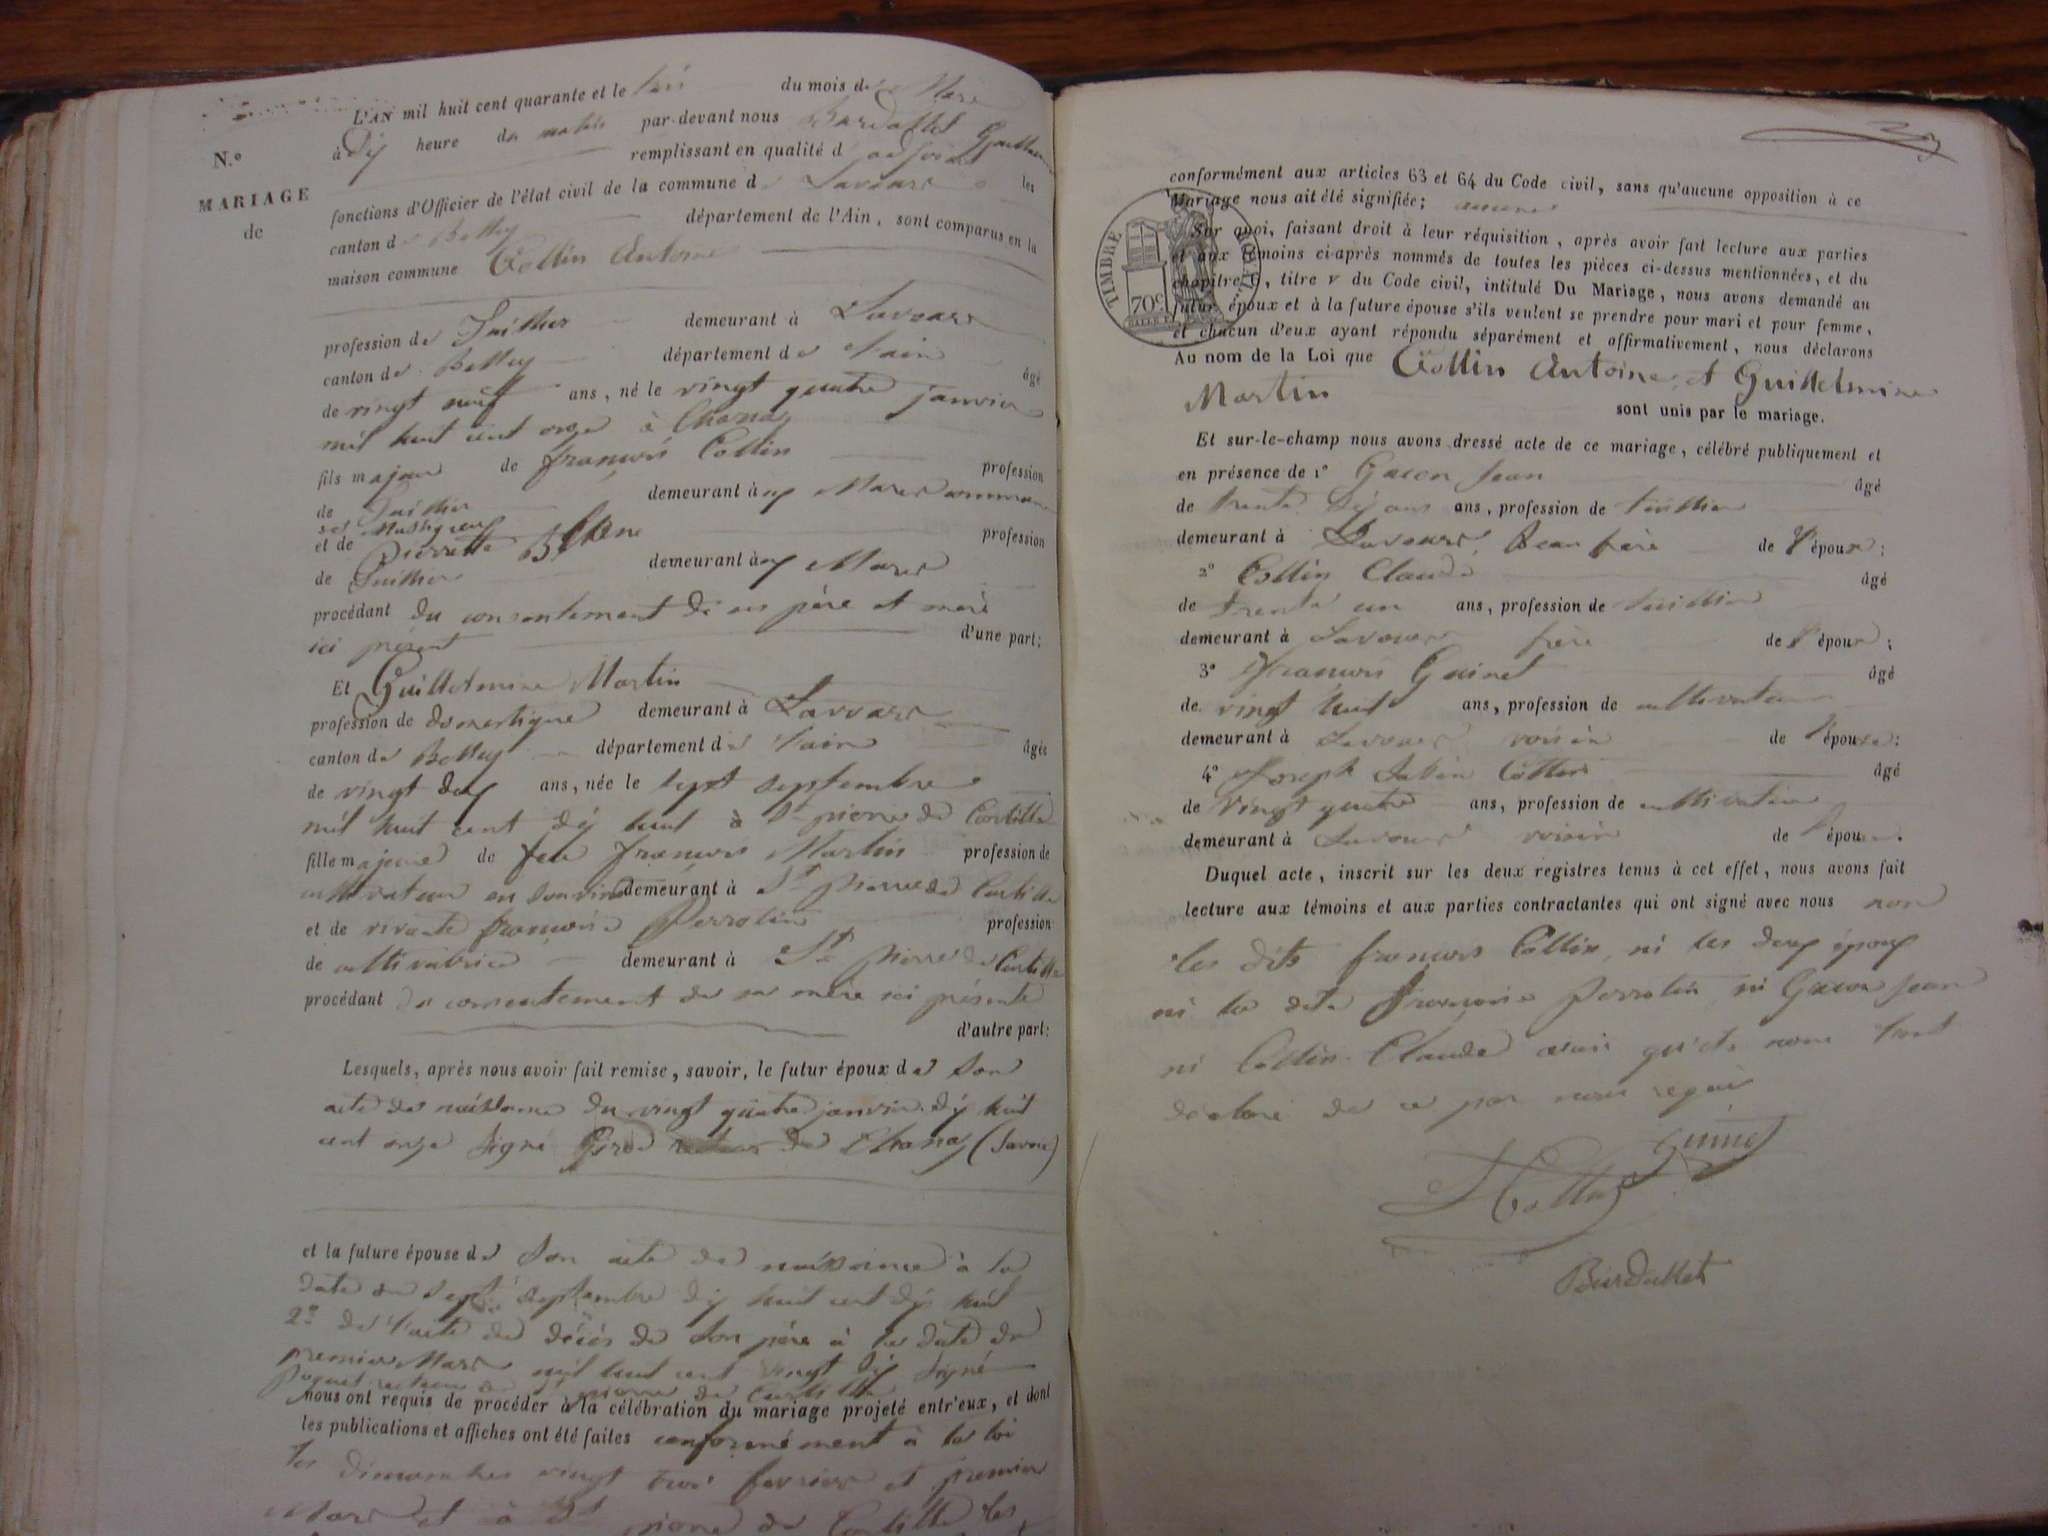 L'AN mil huit cent quarante et le du mois de Mars
N.º
à Dix heure du matin par-devant nous Burdallet
remplissant en qualité d
MARIAGE
de
fonctions d'Officier de l'état civil de la commune de Lavours les
canton de Belley département de l'Ain, sont comparus en la
maison commune Collin Antoine
profession de Tuillier demeurant à Lavours
canton de Belley département de l'ain âgé
de vingt neuf ans, né le vingt quatre janvier
mil huit cent onze à Chanaz
fils majeur de françois Collin profession
de Tuillier demeurant à
et de Pierrette profession
de Tuillier demeurant à
procédant du consentement de ses père et mère
ici présent d'une part;
Et Guillelmine Martin
profession de domestique demeurant à Lavours
canton de Belley département de l'ain âgée
de vingt deux ans, née le sept septembre
mil huit cent dix huit à St pierre de Curtille
fille majeure de feu françois Martin profession de
cultivateur en son vivant demeurant à St pierre de Curtille
et de vivante françoise Perrotin profession
de cultivatrice demeurant à St pierre de Curtille
procédant du consentement de sa mère ici présente
d'autre part:
Lesquels, après nous avoir fait remise, savoir, le futur époux de Son
acte de naissance du vingt quatre janvier dix huit
cent onze Signé recteur de Chanaz (Savoie)
et la future épouse de Son acte de naissance à la
date du Sept Septembre dix huit cent dix huit
2º de l'acte de décès de Son père à la date du
premier Mars mil huit cent vingt dix Signé
recteur de St pierre de Curtille
nous ont requis de procéder à la célébration du mariage projeté entr'eux, et dont
les publications et affiches ont été faites conformément à la loi
les dimanches vingt trois fevrier et premier
Mars et à St pierre de Curtille les
conformément aux articles 63 et 64 du Code civil, sans qu'aucune opposition à ce
Mariage nous ait été signifiée; aucune
TIMBRE ROYAL
70 c
Sur quoi, faisant droit à leur réquisition, après avoir fait lecture aux parties
et aux témoins ci-après nommés de toutes les pièces ci-dessus mentionnées, et du
chapitre 6, titre v du Code civil, intitulé Du Mariage, nous avons demandé au
futur époux et à la future épouse s'ils veulent se prendre pour mari et pour femme,
et chacun d'eux ayant répondu séparément et affirmativement, nous déclarons
Au nom de la Loi que Collin Antoine et Guillelmine
Martin sont unis par le mariage.
Et sur-le-champ nous avons dressé acte de ce mariage, célébré publiquement et
en présence de 1º Gacon Jean âgé
de trente ans, profession de tuillier
demeurant à Lavours, Beau frère de l'époux;
2º Collin Claude âgé
de trente un ans, profession de tuillier
demeurant à Lavours frère de l'époux;
3º françois Guinet âgé
de vingt huit ans, profession de cultivateur
demeurant à Lavours voisin de l'époux;
4º Joseph Collin âgé
de vingt quatre ans, profession de cultivateur
demeurant à Lavours voisin de l'époux.
Duquel acte, inscrit sur les deux registres tenus à cet effet, nous avons fait
lecture aux témoins et aux parties contractantes qui ont signé avec nous non
les dits françois Collin, ni les deux époux
ni la dite françoise Perrotin ni Gacon Jean
ni Collin Claude qu'ils nous l'ont
déclaré de ce par nous requis
Guinet
Collin
Burdallet